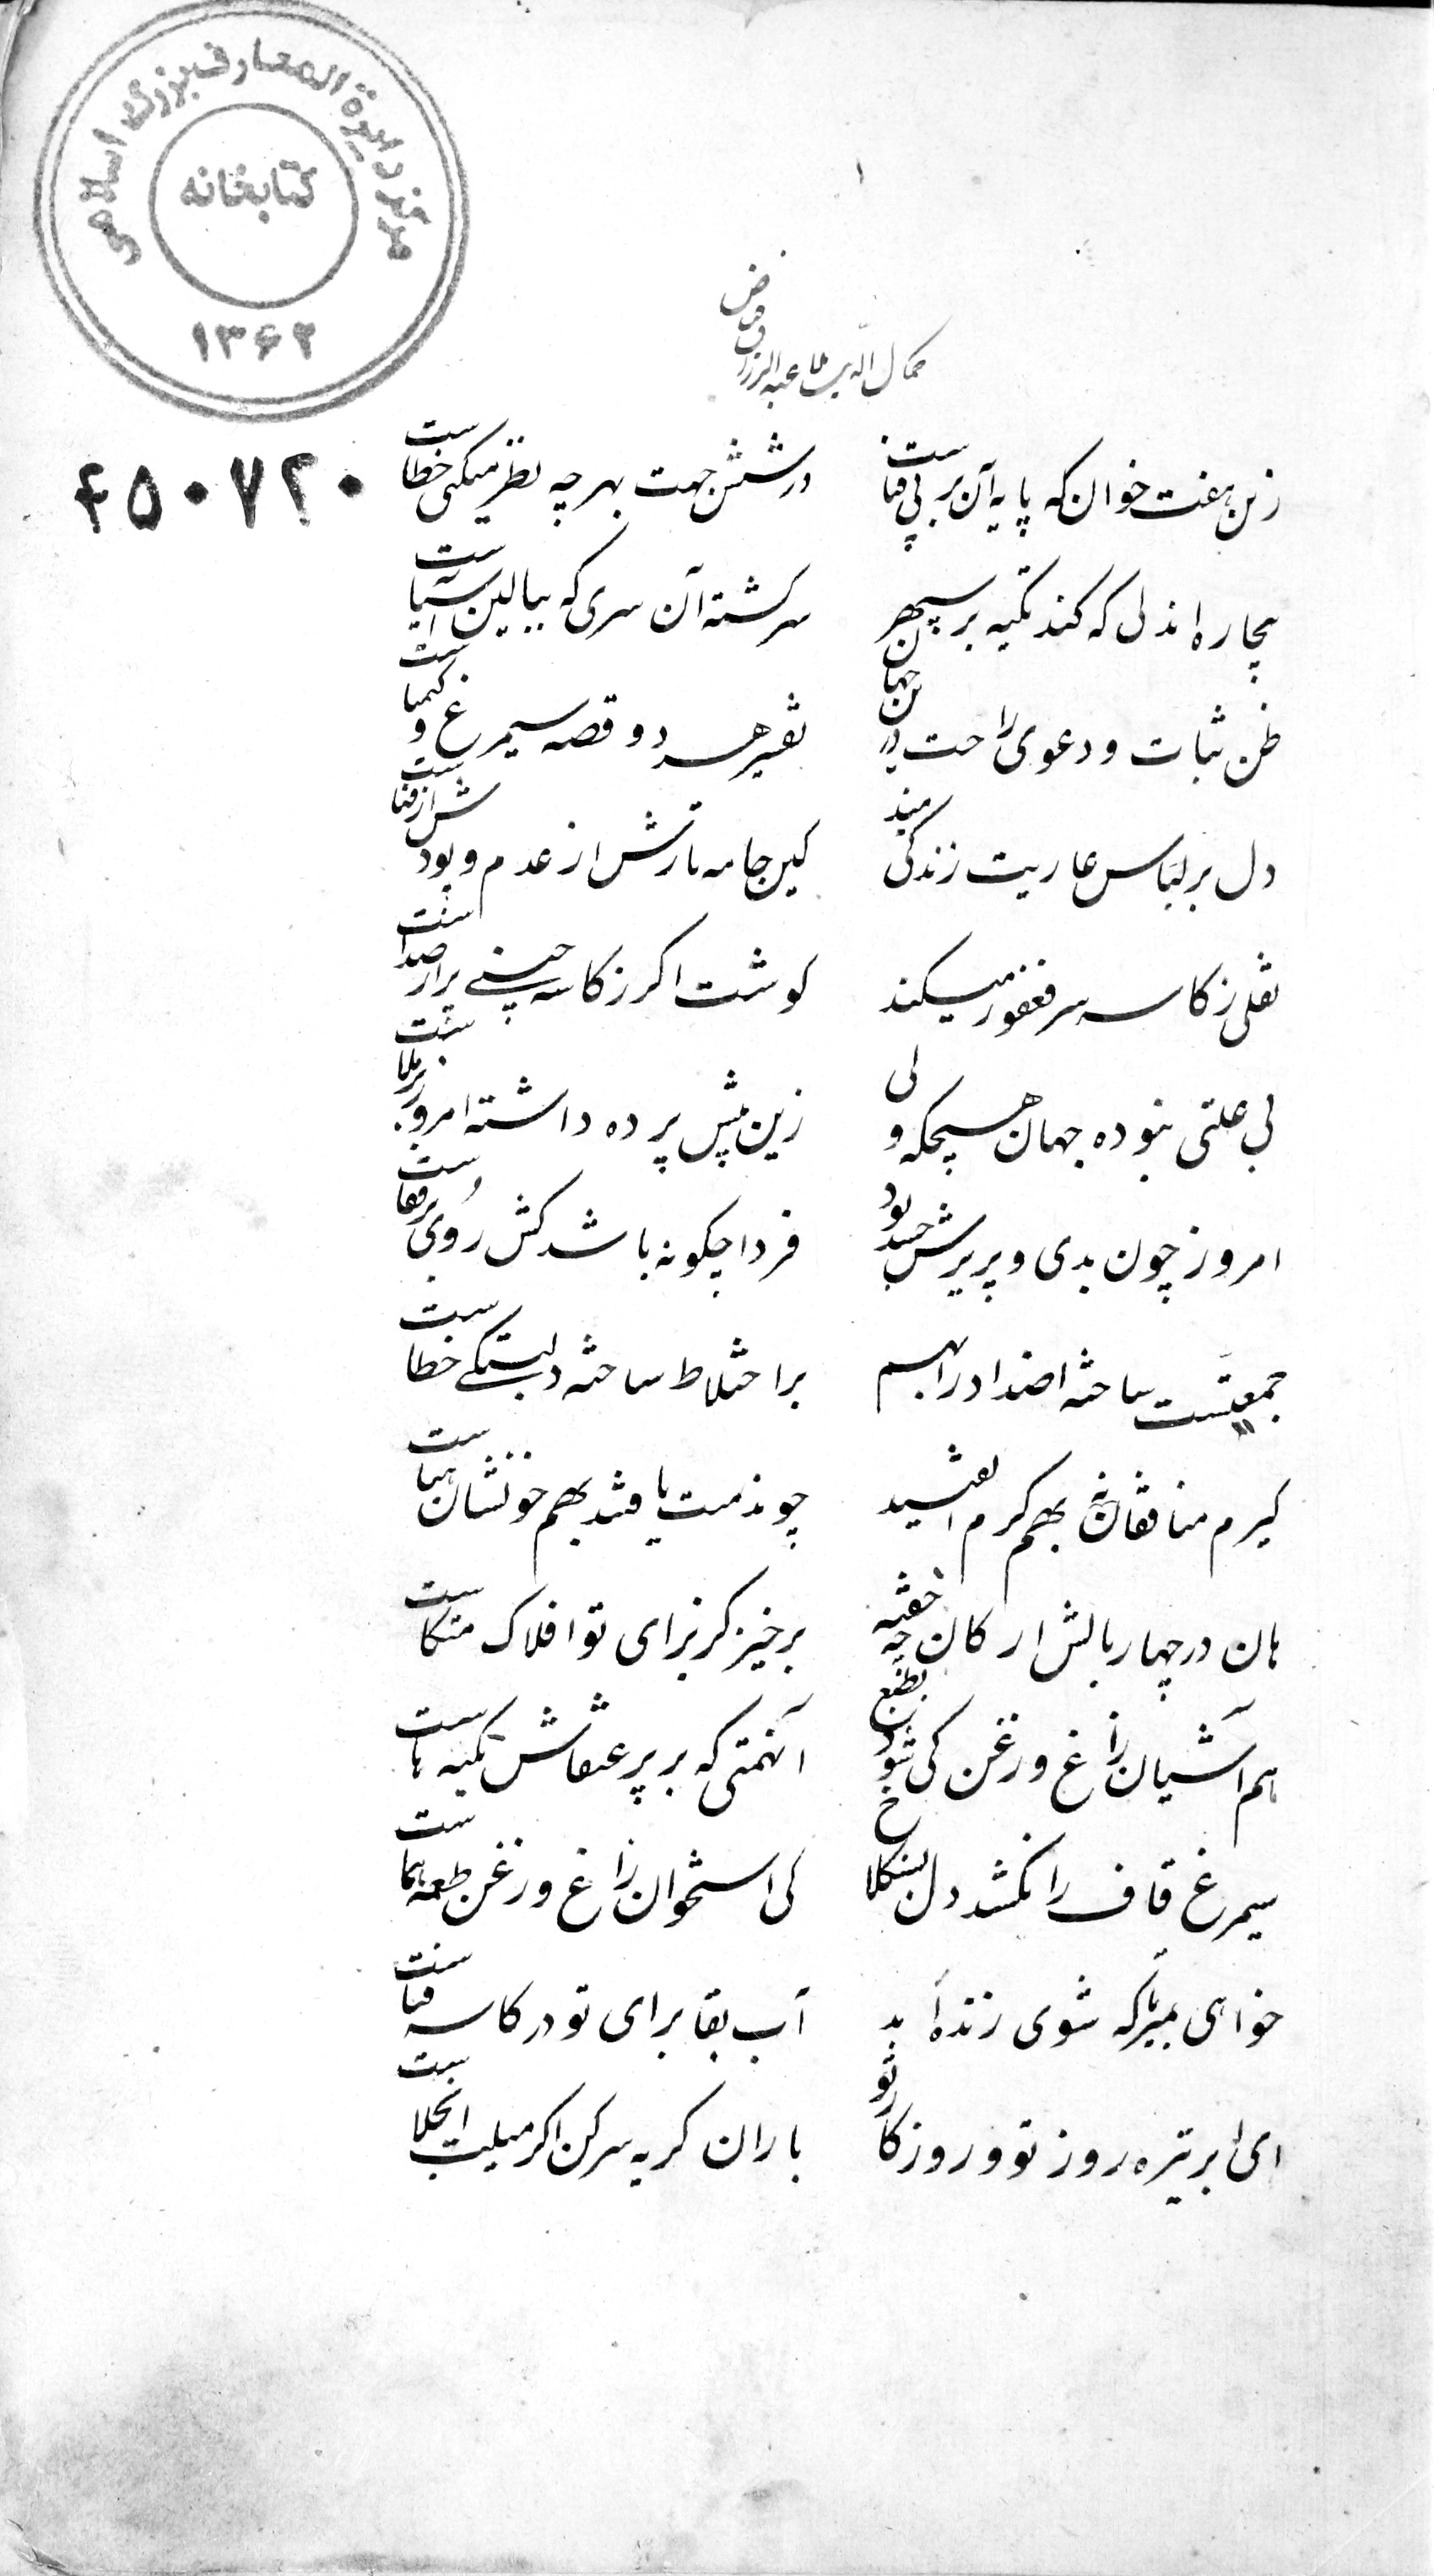 مرکز دایرة المعارف بزرگ اسلامی
کتابخانه
۱۳۶۲
۱
کمال الدین ملا عبدالرزاق
۴۵۰۷۲۰
زین هفت خوان که پایه آن بر پی فناست در شش جهت بهرچه نظر میکنی خطاست
بیچاره اندلی که کند تکیه بر سپهر سرگشته آن سری که ببالین آسیاست
ظن ثبات و دعوی راحت در جهان تفسیر هر دو قصه سیمرغ و کیمیاست
دل بر لباس عاریت زندگی مبند کین جامه تارش از عدم و پودش از فناست
نقلی ز کاسه سر فغفور میکند گوشت اگر ز کاسه چینی پر از صداست
بی علتی نبوده جهان هیچگه ولی زین پیش پرده داشته امروز برملاست
امروز چون بدی و پریرش چه بود فردا چگونه باشد کش روی برقفاست
جمعیتست ساخته اضداد را بهم بر اختلاط ساخته دلبستگی خطاست
گیرم منافقانه بهم گرم الفتند چو ندمت یافتند بهم خونشان هباست
هان در چهار بالش ارکان چه خفته برخیز کز برای تو افلاک متکاست
هم آشیان زاغ و زغن کی شود بطبع آنهمتی که بر پر عنقاش تکیه هاست
سیمرغ قاف را نکشد دل بسنگلاخ کی استخوان زاغ و زغن طعمه هماست
خواهی بمیر تا که شوی زنده ابد آب بقا برای تو در کاسه فناست
ای ابر تیره روز تو و روزگار تو باران گریه سر کن اگر میلت انجلاست